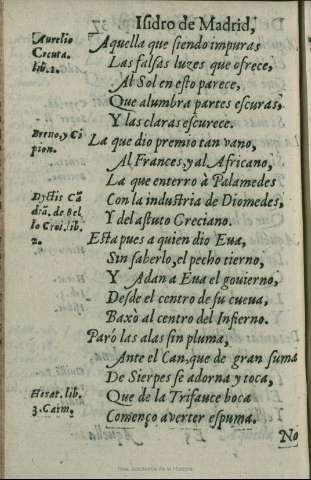 Isidro de Madrid,
Aurelio
Cecuta.
lib. 2.
Aquella que siendo impuras
Las falsas luzes que ofrece,
Al Sol en esto parece,
Que alumbra partes escuras,
Y las claras escurece.
Breno, y Ci
pion.
La que dio premio tan vano,
Al Frances, y al Africano,
La que enterrò à Palamedes
Dyctis Cã
diã. de Bel
lo Troi. lib.
2.
Con la industria de Diomedes,
Y del astuto Greciano.
Esta pues a quien dio Eua,
Sin saberlo, el pecho tierno,
Y Adan a Eua el gouierno,
Desde el centro de su cueua,
Baxò al centro del Infierno.
Parò las alas sin pluma,
Ante el Can, que de gran suma
De Sierpes se adorna y toca,
Horat. lib.
3. Carm.
Que de la Trifauce boca
Començo a verter espuma.
No
Real Academia de la Historia